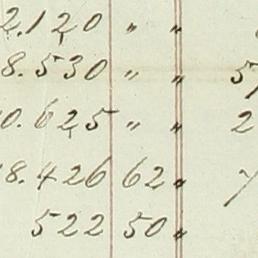 2.120 " "
8.530 " " 5
0.625 " " 2
8.426 62 "
522 50 "